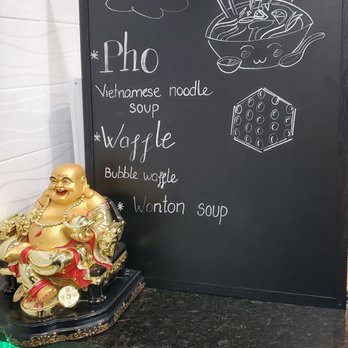 *Pho
Vietnamese noodle
soup
*Waffle
Bubble waffle
* Wonton soup